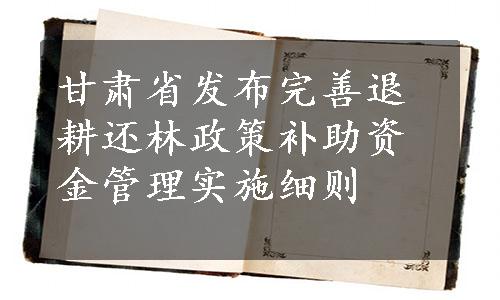 甘肃省发布完善退
耕还林政策补助资
金管理实施细则